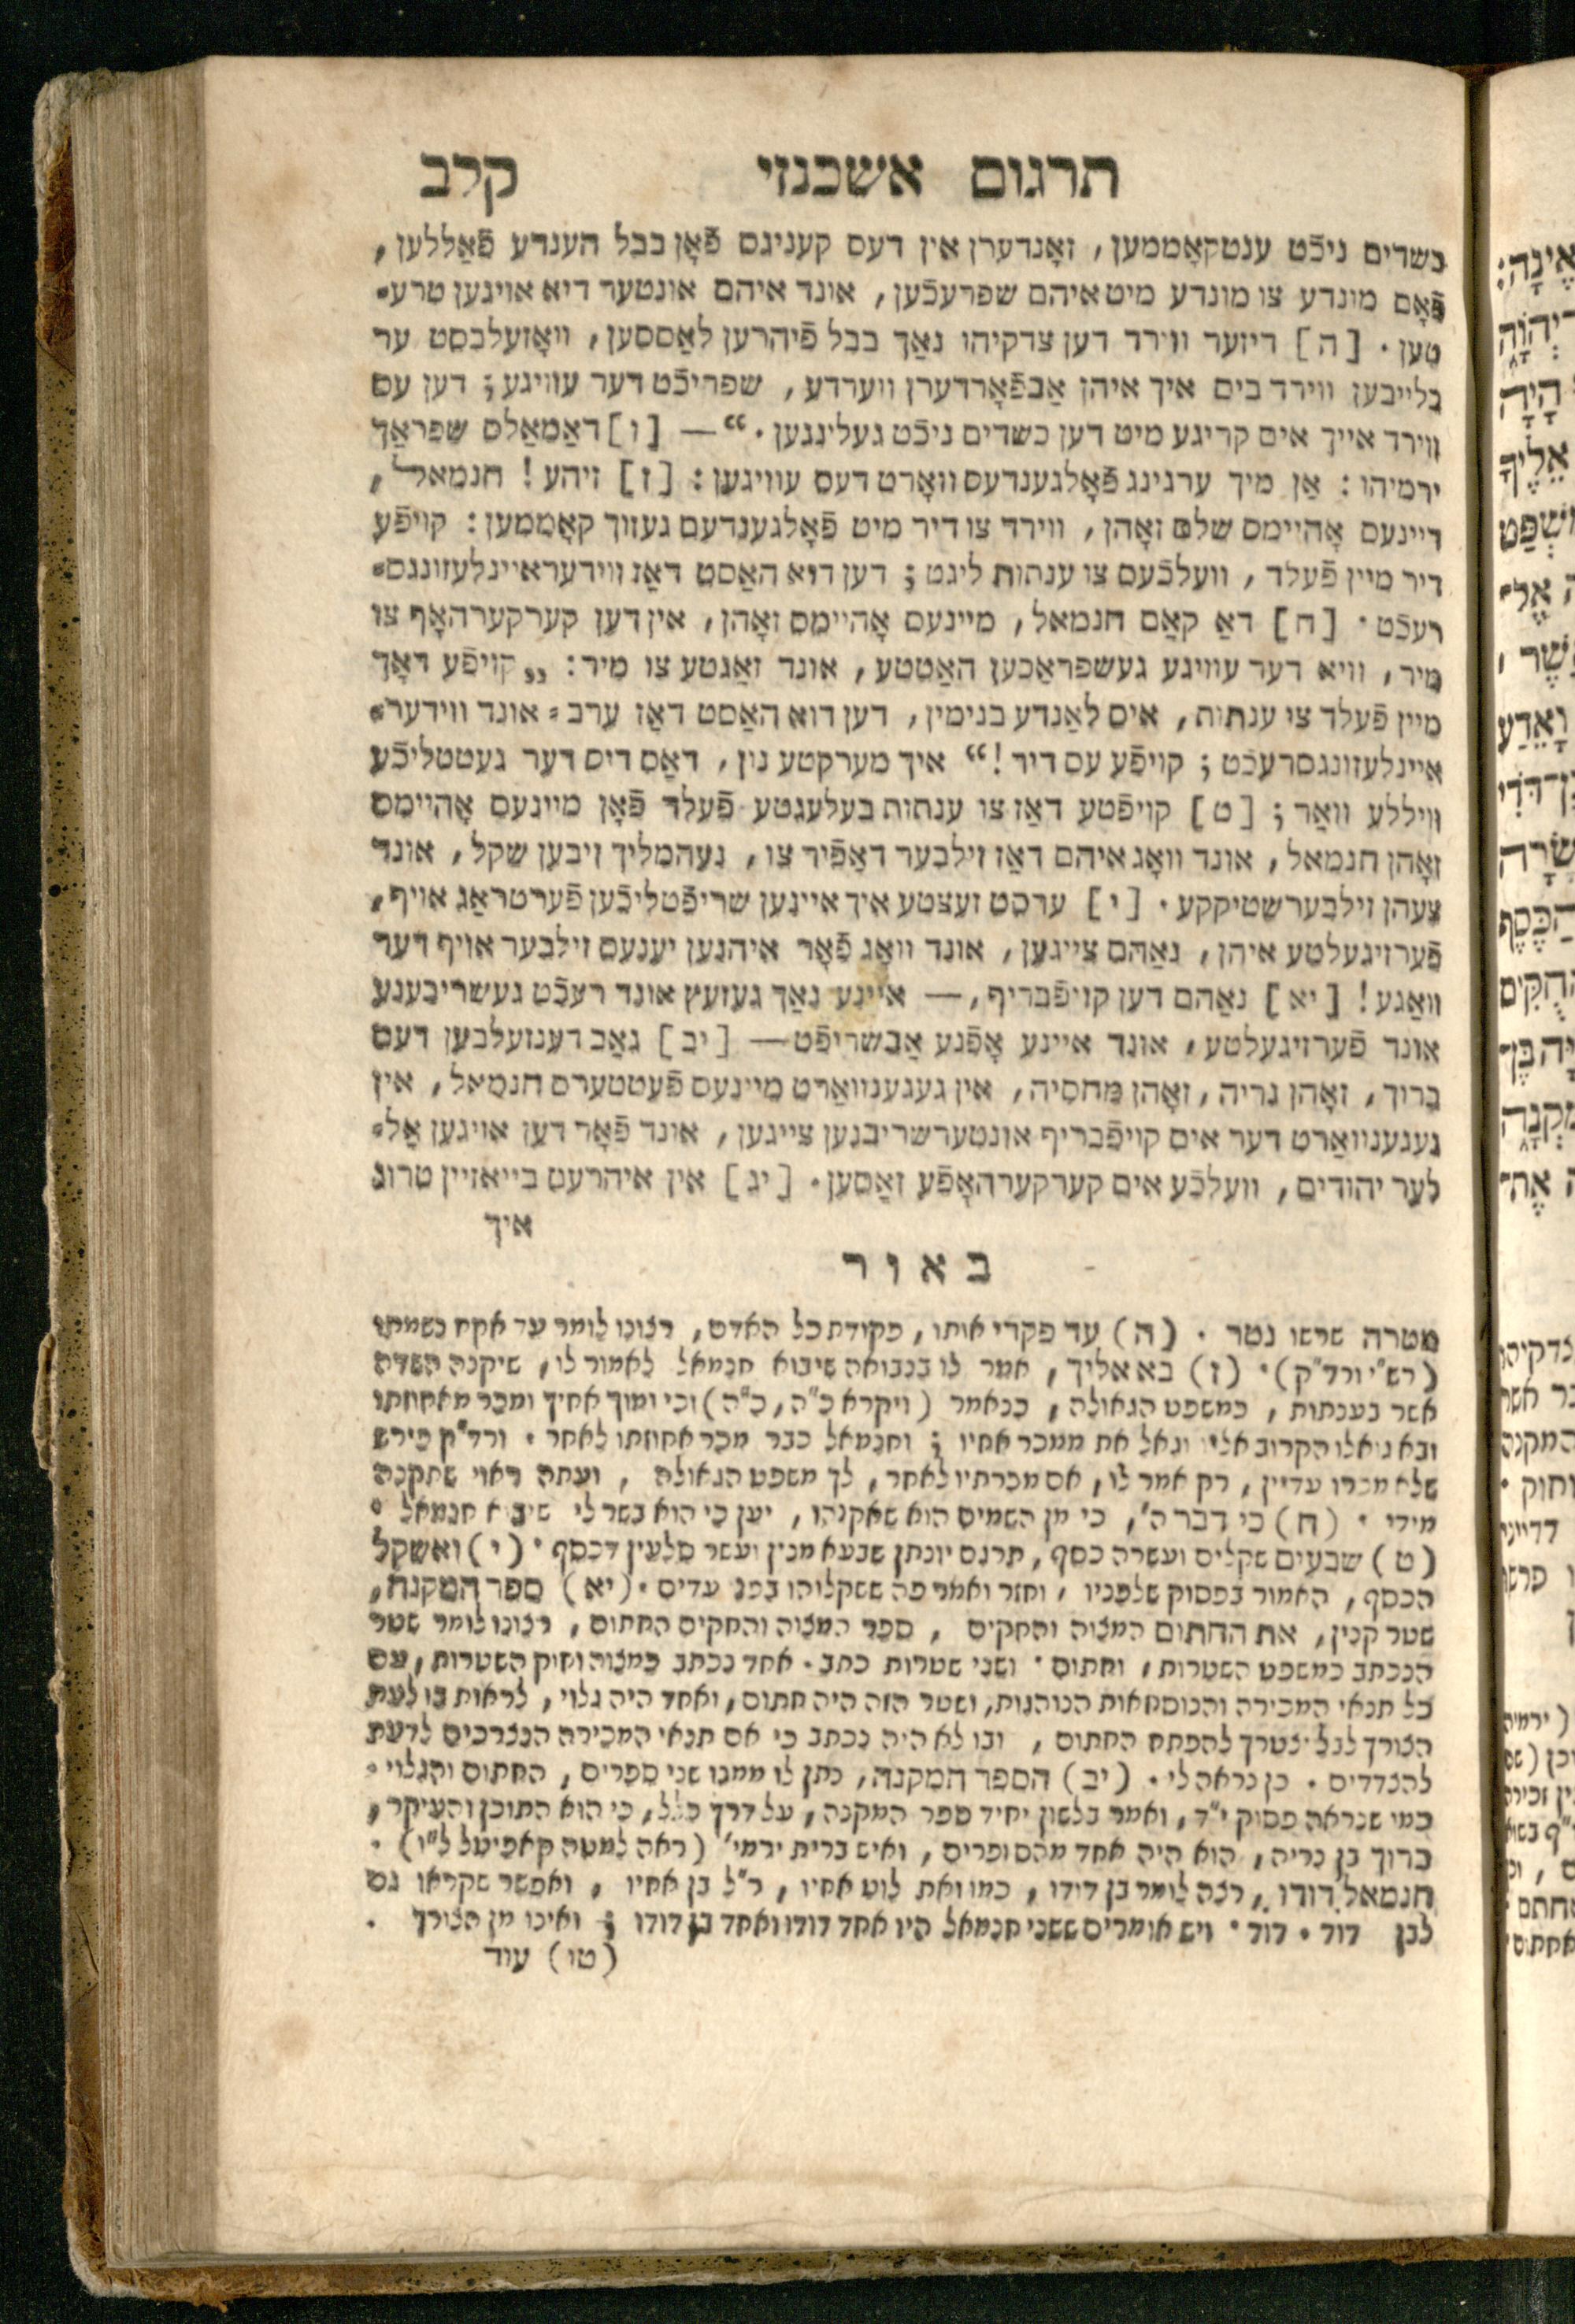 תרגום אשכנזי קלב
כשדים ניכֿט ענטקאָממען, זאָנדערן אין דעס קעניגס פֿאָן בבל הענדע פֿאַללען,
פֿאָם מונדע צו מונדע מיט איהם שפרעכֿען, אונד איהם אונטער דיא אויגען טרע⸗
טען. [ה] דיזער ווירד דען צדקיהו נאַך בבל פֿיהרען לאַססען, וואָזעלבסט ער
בלייבען ווירד ביס איך איהן אַבפֿאָרדערן ווערדע, שפריכֿט דער עוויגע; דען עס
ווירד אייך אים קריגע מיט דען כשדים ניכֿט געלינגען.“ — [ו] דאַמאַלס שפראַך
ירמיהו: אַן מיך ערגינג פֿאָלגענדעס וואָרט דעס עוויגען: [ז] זיהע! חנמאל,
דיינעס אָהיימס שלם זאָהן, ווירד צו דיר מיט פֿאָלגענדעם געזוך קאָממען: קויפֿע
דיר מיין פֿעלד, וועלכֿעס צו ענתות ליגט; דען דוא האַסט דאַז ווידעראיינלעזונגס⸗
רעכֿט. [ח] דאַ קאַם חנמאל, מיינעס אָהיימס זאָהן, אין דען קערקערהאָף צו
מיר, וויא דער עוויגע געשפראַכען האַטטע, אונד זאַגטע צו מיר: „קויפֿע דאָך
מיין פֿעלד צו ענתות, אים לאַנדע בנימין, דען דוא האַסט דאַז ערב⸗ אונד ווידער⸗
איינלעזונגסרעכֿט; קויפֿע עס דיר!“ איך מערקטע נון, דאַס דיס דער געטטליכֿע
וויללע וואַר; [ט] קויפֿטע דאַז צו ענתות בעלעגטע פֿעלד פֿאָן מיינעס אָהיימס
זאָהן חנמאל, אונד וואָג איהם דאַז זילבער דאַפֿיר צו, נעהמליך זיבען שקל, אונד
צעהן זילבערשטיקקע. [י] ערסט זעצטע איך איינען שריפֿטליכֿען פֿערטראַג אויף,
פֿערזיגעלטע איהן, נאַהם צייגען, אונד וואָג פֿאָר איהנען יענעס זילבער אויף דער
וואַגע! [יא] נאַהם דען קויפֿבריף, — איינע נאַך געזעץ אונד רעכֿט געשריבענע
אונד פֿערזיגעלטע, אונד איינע אָפֿנע אַבשריפֿט — [יב] גאַב דענזעלבען דעם
ברוך, זאָהן נריה, זאָהן מחסיה, אין געגענוואַרט מיינעס פֿעטטערס חנמאל, אין
געגענוואַרט דער אים קויפֿבריף אונטערשריבנען צייגען, אונד פֿאָר דען אויגען אַל⸗
לער יהודים, וועלכֿע אים קערקערהאָפֿע זאַסען. [יג] אין איהרעם בייאזיין טרוג
איך
באור
מטרה שרשו נטר. (ה) עד פקדי אותו, פקודת כל האדם, רצונו לומר עד אקח נשמתו
(רש"י ורד"ק). (ז) בא אליך, אמר לו בנבואה שיבוא חנמאל לאמור לו, שיקנה השדה
אשר בענתות, כמשפט הגאולה, כנאמר (ויקרא כ"ה, כ"ה) וכי ימוך אחיך ומכר מאחוזתו
ובא גואלו הקרוב אליו וגאל את ממכר אחיו; וחנמאל כבר מכר אחוזתו לאחר. ורד"ק פירש
שלא מכרו עדיין, רק אמר לו, אם מכרתיו לאחר, לך משפט הגאולה, ועתה ראוי שתקנה
מידי. (ח) כי דבר ה', כי מן השמים הוא שאקנהו, יען כי הוא בשר לי שיבוא חנמאל.
(ט) שבעים שקלים ועשרה כסף, תרגם יונתן שבעא מנין ועשר סלעין דכסף. (י) ואשקל
הכסף, האמור בפסוק שלפניו, וחזר ואמר פה ששקלוהו בפני עדים. (יא) ספר המקנה,
שטר קנין, את החתום המצוה והחקים, ספר המצוה והחקים החתום, רצונו לומר שטר
הנכתב כמשפט השטרות, וחתום. ושני שטרות כתב. אחד נכתב כמצוה וחוק השטרות, עם
כל תנאי המכירה והנוסחאות הנוהגות, ושטר הזה היה חתום, ואחד היה גלוי, לראות בו לעת
הצורך לבל יצטרך להפתח החתום, ובו לא היה נכתב כי אם תנאי המכירה הנצרכים לדעת
להצדדים. כן נראה לי. (יב) הספר המקנה, נתן לו ממנו שני ספרים, החתום והגלוי.
כמי שנראה פסוק י"ד, ואמר בלשון יחיד ספר המקנה, על דרך כלל, כי הוא התוכן והעיקר,
ברוך בן נריה, הוא היה אחד מהסופרים, ואיש ברית ירמי' (ראה למטה קאפיטל ל"ו).
חנמאל דודו, רצה לומר בן דודו, כמו ואת לוט אחיו, ר"ל בן אחיו, ואפשר שקראו גם
לבן דוד. דוד. ויש אומרים ששני חנמאל היו אחד דודו ואחד בן דודו; ואינו מן הצורך.
(טו) עוד